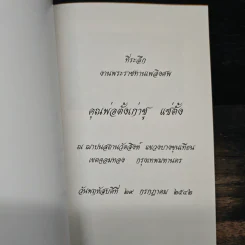 ที่ระลึก
งานพระราชทานเพลิงศพ
คุณพ่อตั้งเก่าชู แซ่ตั้ง
ณ ฌาปนสถานวัดสิงห์ แขวงบางขุนเทียน
เขตจอมทอง กรุงเทพมหานคร
วันพฤหัสบดีที่ ๒๙ กรกฎาคม ๒๕๔๒